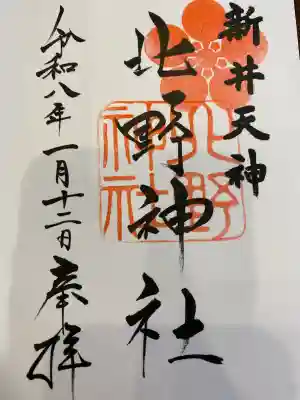 新井天神
北野神社
北野神社
令和八年一月十二日奉拝